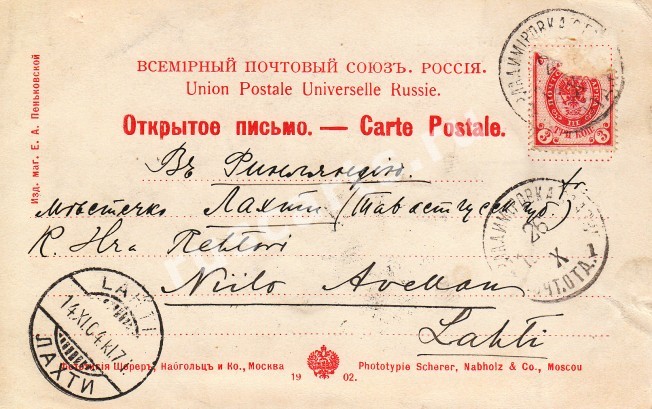 ВСЕМІРНЫЙ ПОЧТОВЫЙ СОЮЗЪ. РОССІЯ.
Union Postale Universelle Russie.
Открытое письмо. — Carte Postale.
Изд. маг. Е. А. Пеньковской
3 ТРИ КОП. 3
Въ Финляндію
мѣстечко Лахти (Тавастгусск. губ.)
Niilo Avellan
Lahti
26
X
ПОЧТ.ОТД. 1
LAHTI
14.XI.04
ЛАХТИ
Фототипія Шереръ, Набгольцъ и Ко., Москва
Phototypie Scherer, Nabholz & Co., Moscou
19 02.